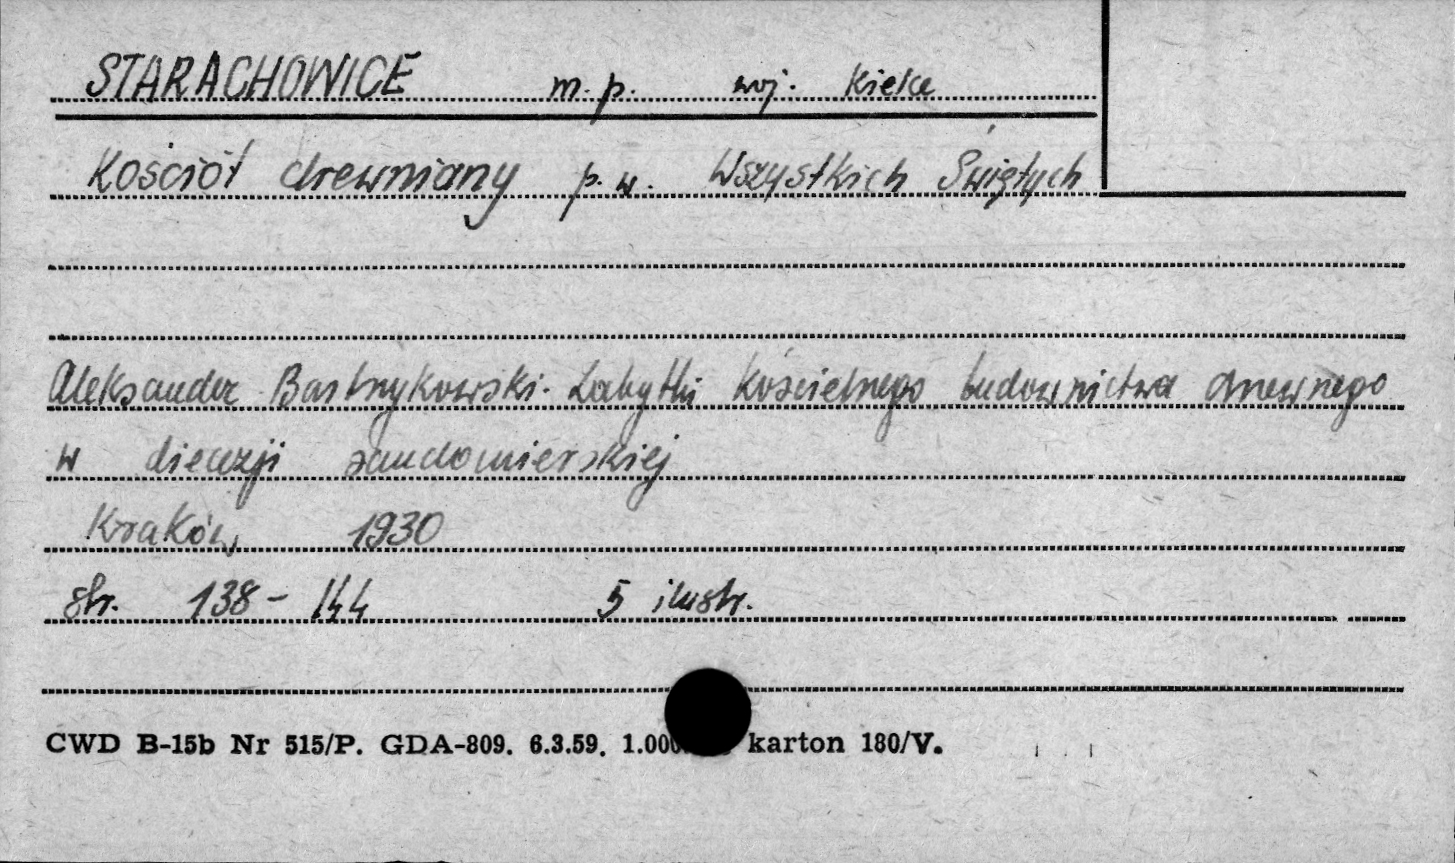 STARACHOWICE m. p. woj. Kielce
Kościół drewniany p. w. Wszystkich Świętych
Aleksander Bastrzykowski. Zabytki kościelnego budownictwa drewnego
w diecezji sandomierskiej
Kraków 1930
str. 138 - 144 5 ilustr.
CWD B-15b Nr 515/P. GDA-809. 6.3.59. karton 180/V.